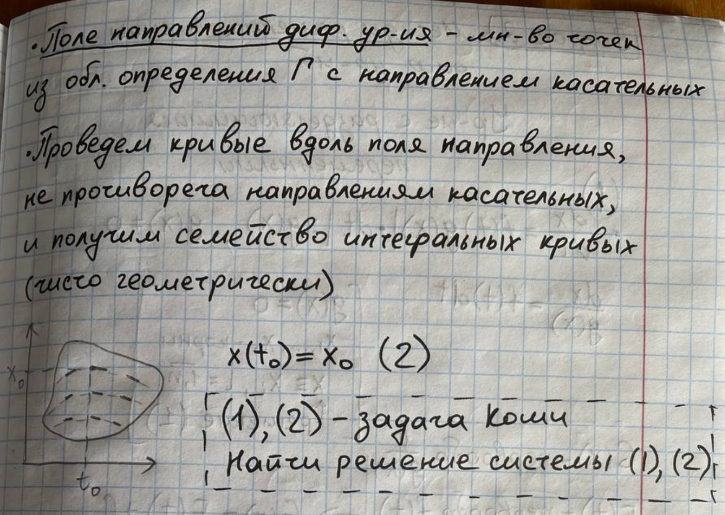 • Поле направлений диф. ур-ия - мн-во точек
из обл. определения Г с направлением касательных
• Проведем кривые вдоль поля направления,
не противореча направлениям касательных,
и получим семейство интегральных кривых
(чисто геометрически)
x(t₀) = x₀ (2)
x₀
(1), (2) - задача Коши
Найти решение системы (1), (2)
t₀